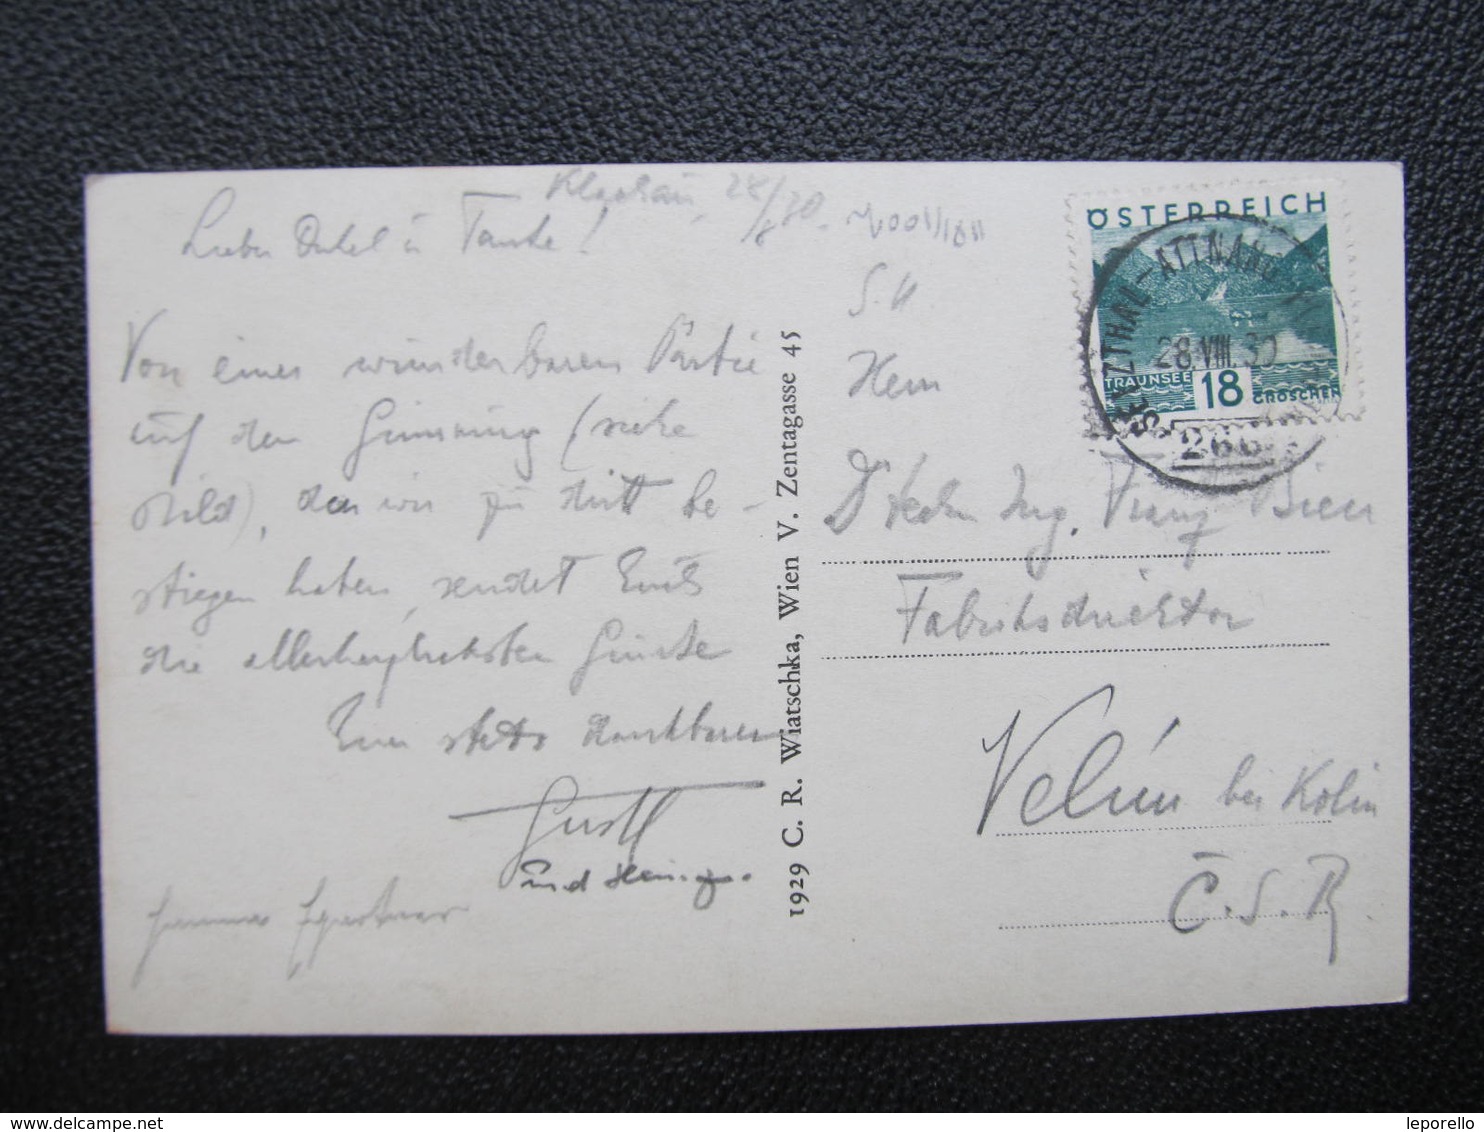 28/8 30.
Lieber Onkel u Tante!
Von einer wunderbaren Partie
auf den Grimming (siehe
Bild), den wir zu dritt be-
stiegen haben, sendet Euch
die allerherzlichsten Grüsse
Euer stets dankbarer
Gustl
und
1929 C. R. Wiatschka, Wien V. Zentagasse 45
ÖSTERREICH
SELZTHAL-ATTNANG
28.VIII.30
TRAUNSEE 18 GROSCHEN
266
S. H.
Herrn
Dr techn Ing. Franz Bien
Fabriksdirektor
Velím bei Kolin
Č.S.R.
leporello